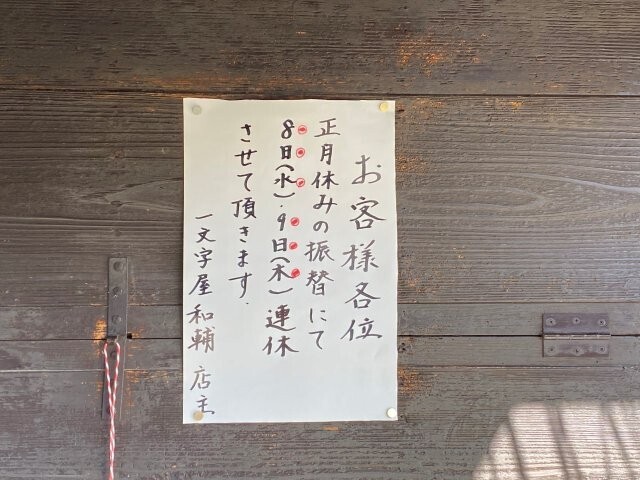 お客様各位
正月休みの振替にて
8日(水)・9日(木)連休
させて頂きます.
一文字屋和輔 店主